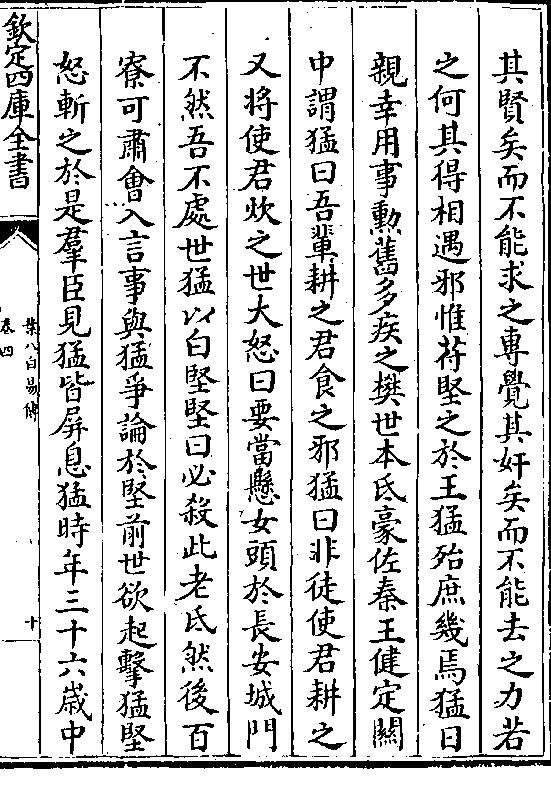 其賢矣而不能求之專覺其奸矣而不能去之力若
之何其得相遇邪惟苻堅之於王猛殆庶幾焉猛日
親幸用事勲舊多疾之樊世本氐豪佐秦王健定關
中謂猛曰吾輩耕之君食之邪猛曰非徒使君耕之
又将使君炊之世大怒曰要當懸女頭於長安城門
不然吾不處世猛以白堅堅曰必殺此老氐然後百
寮可肅會入言事與猛爭論於堅前世欲起擊猛堅
怒斬之於是羣臣見猛皆屏息猛時年三十六歳中
欽定四庫全書
葉八白易傳
卷四
十